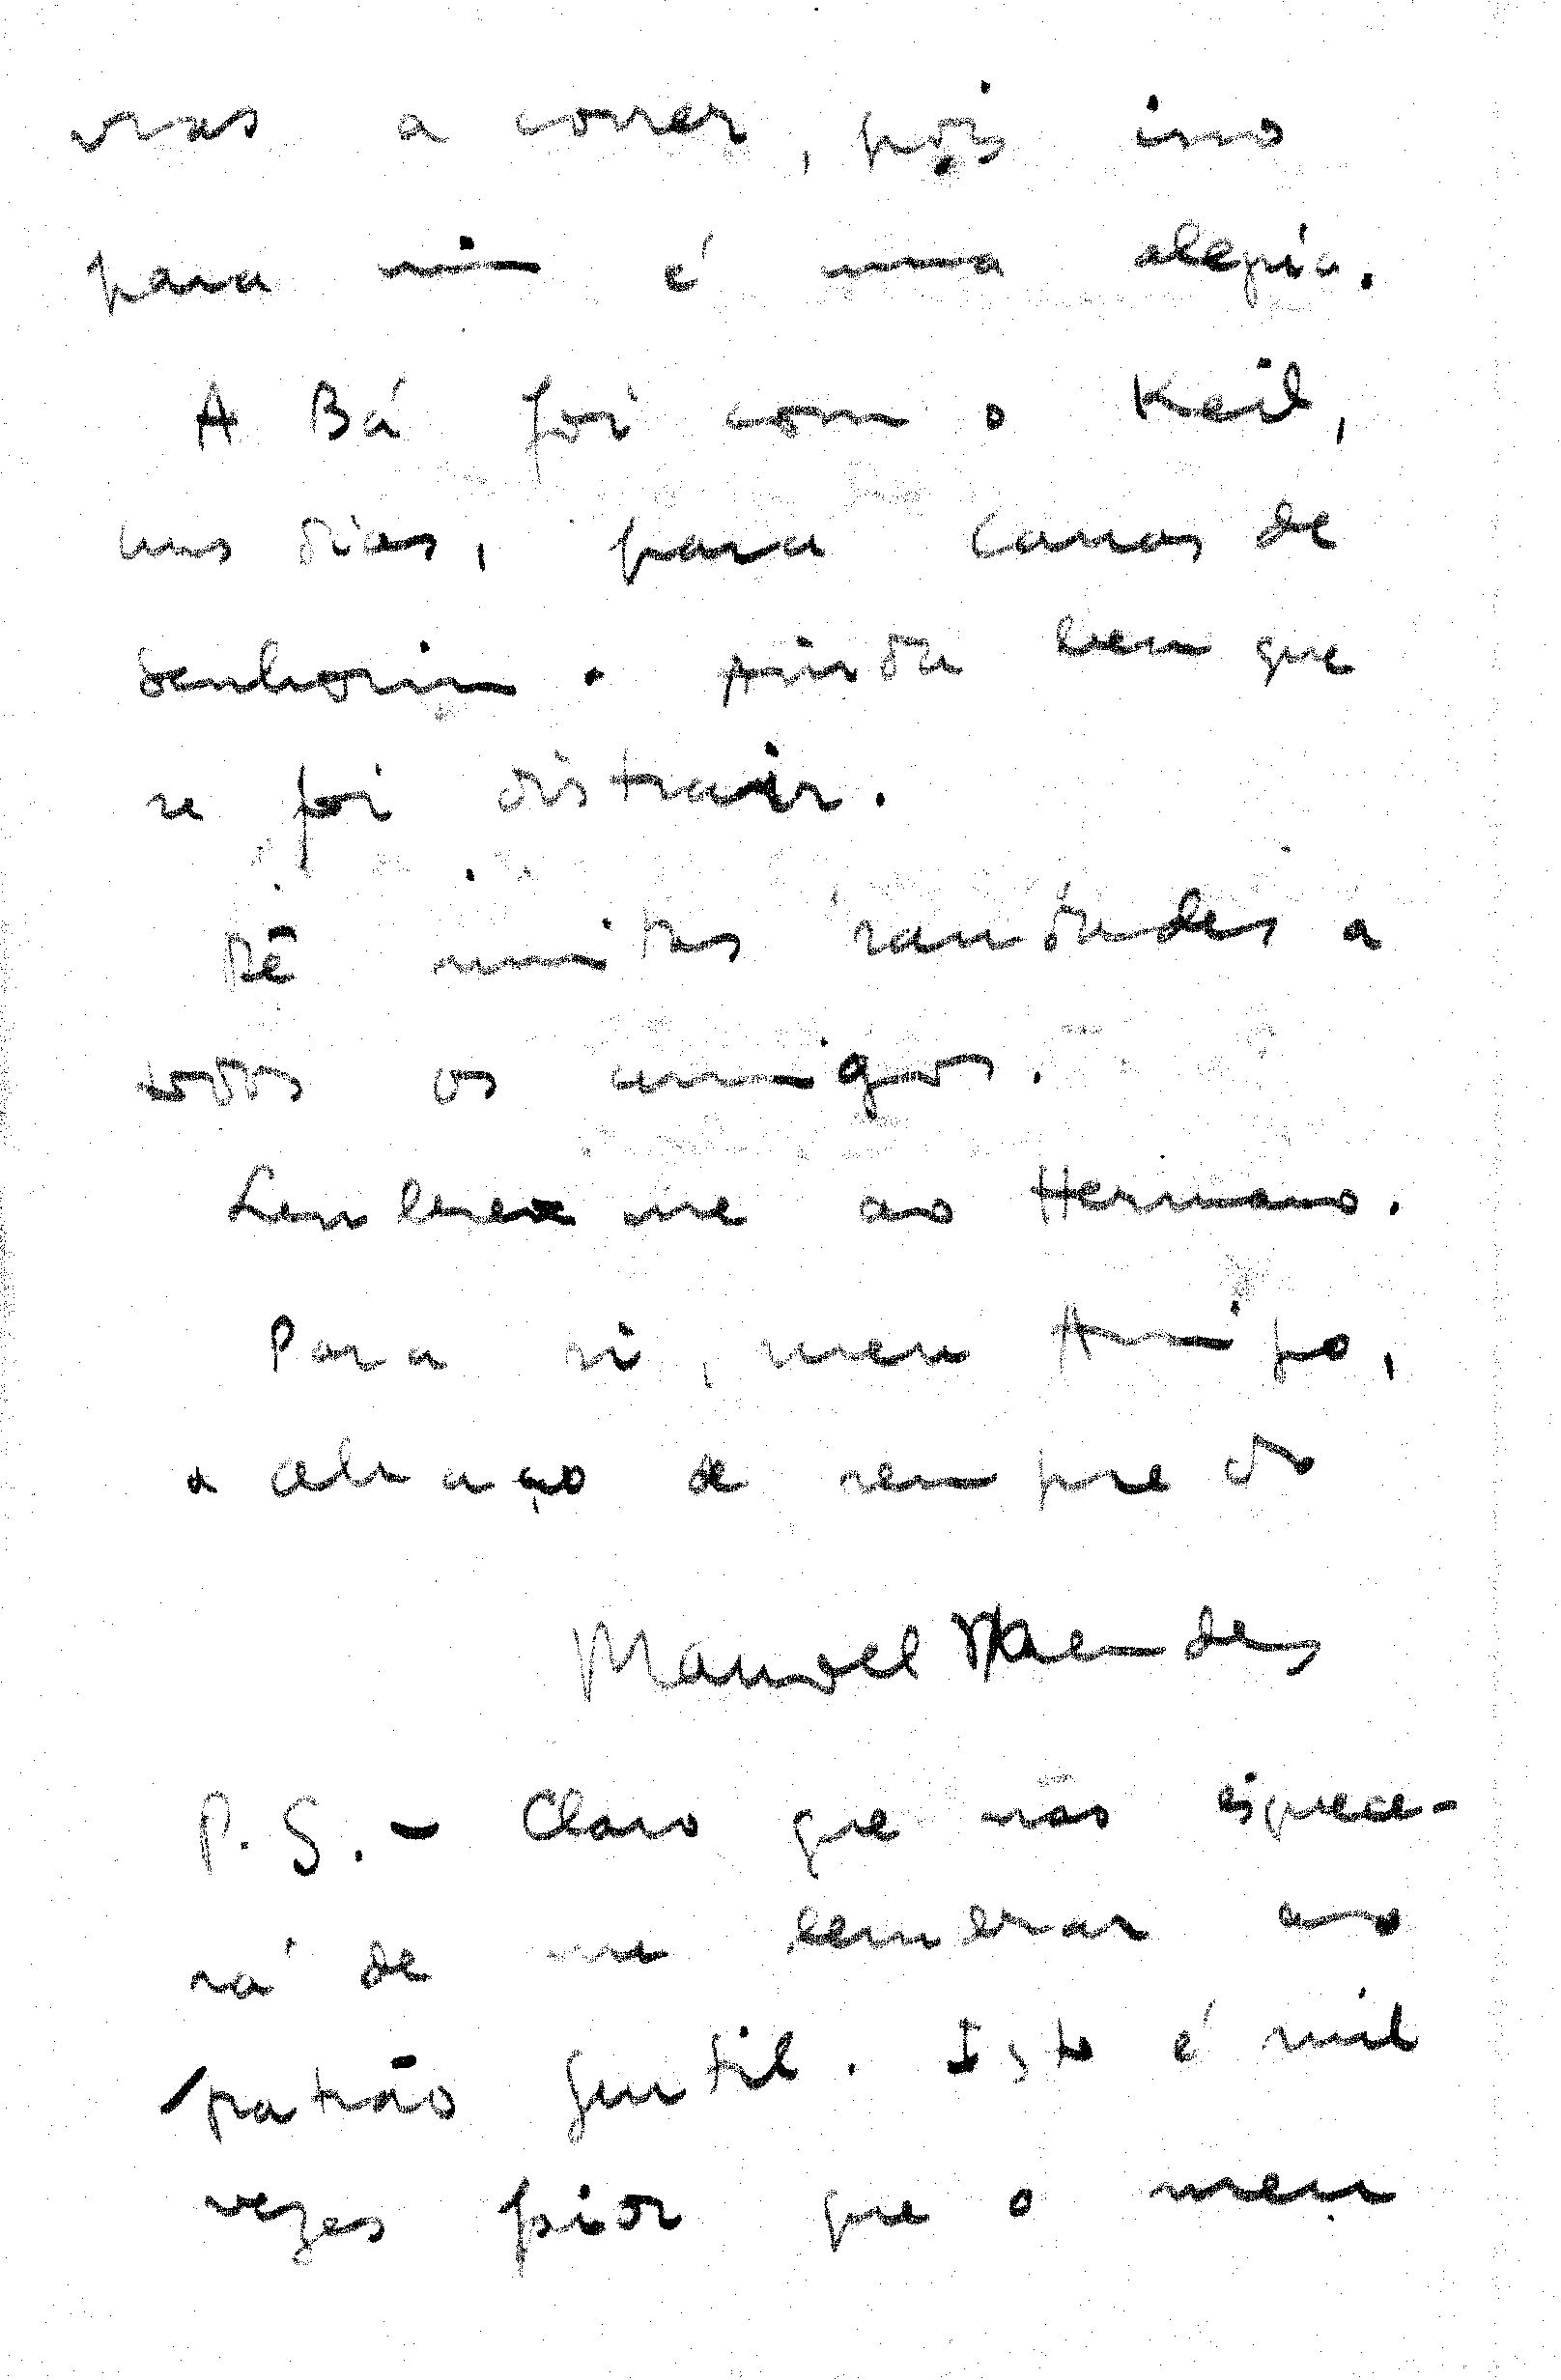 vras a correr, pois isso
para mim é uma alegria.
A Bá foi com o Keil,
uns dias, para Canas de
Senhorim. Ainda bem que
se foi distrair.
Dê muitas saudades a
todos os amigos.
Lembre-me ao Hermano.
Para si, meu Amigo,
o abraço de sempre do
Manuel Mendes
P.S. - Claro que não esquece-
rá de me lembrar ao
patrão gentil. Isto é mil
vezes pior que o meu